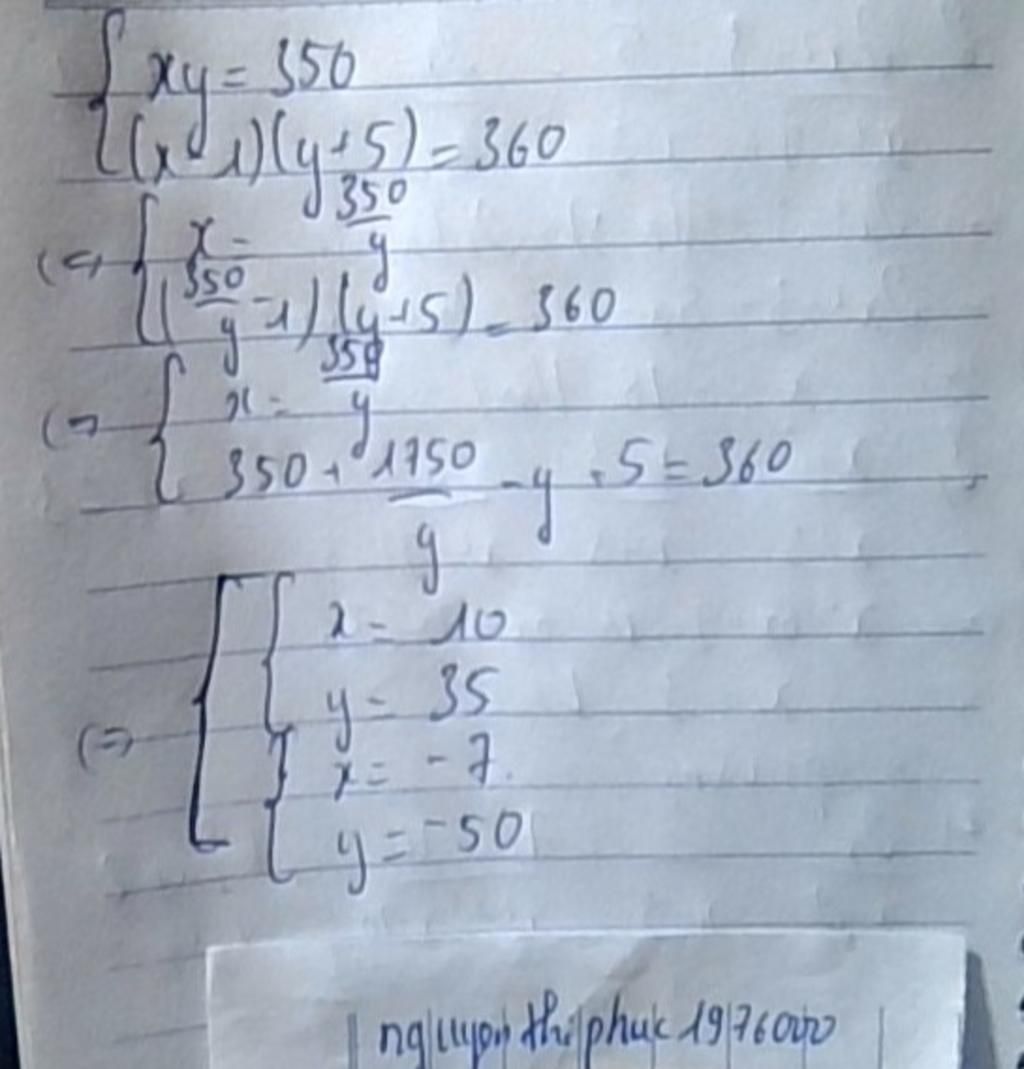 { xy = 350
(x - 1)(y + 5) = 360
(=) { x = 350/y
(350/y - 1)(y + 5) = 360
(=) { x = 350/y
350 + 1750/y - y - 5 = 360
(=) [ { x = 10
y = 35
{ x = -7.
y = -50
nguyen thi phuc 1976000